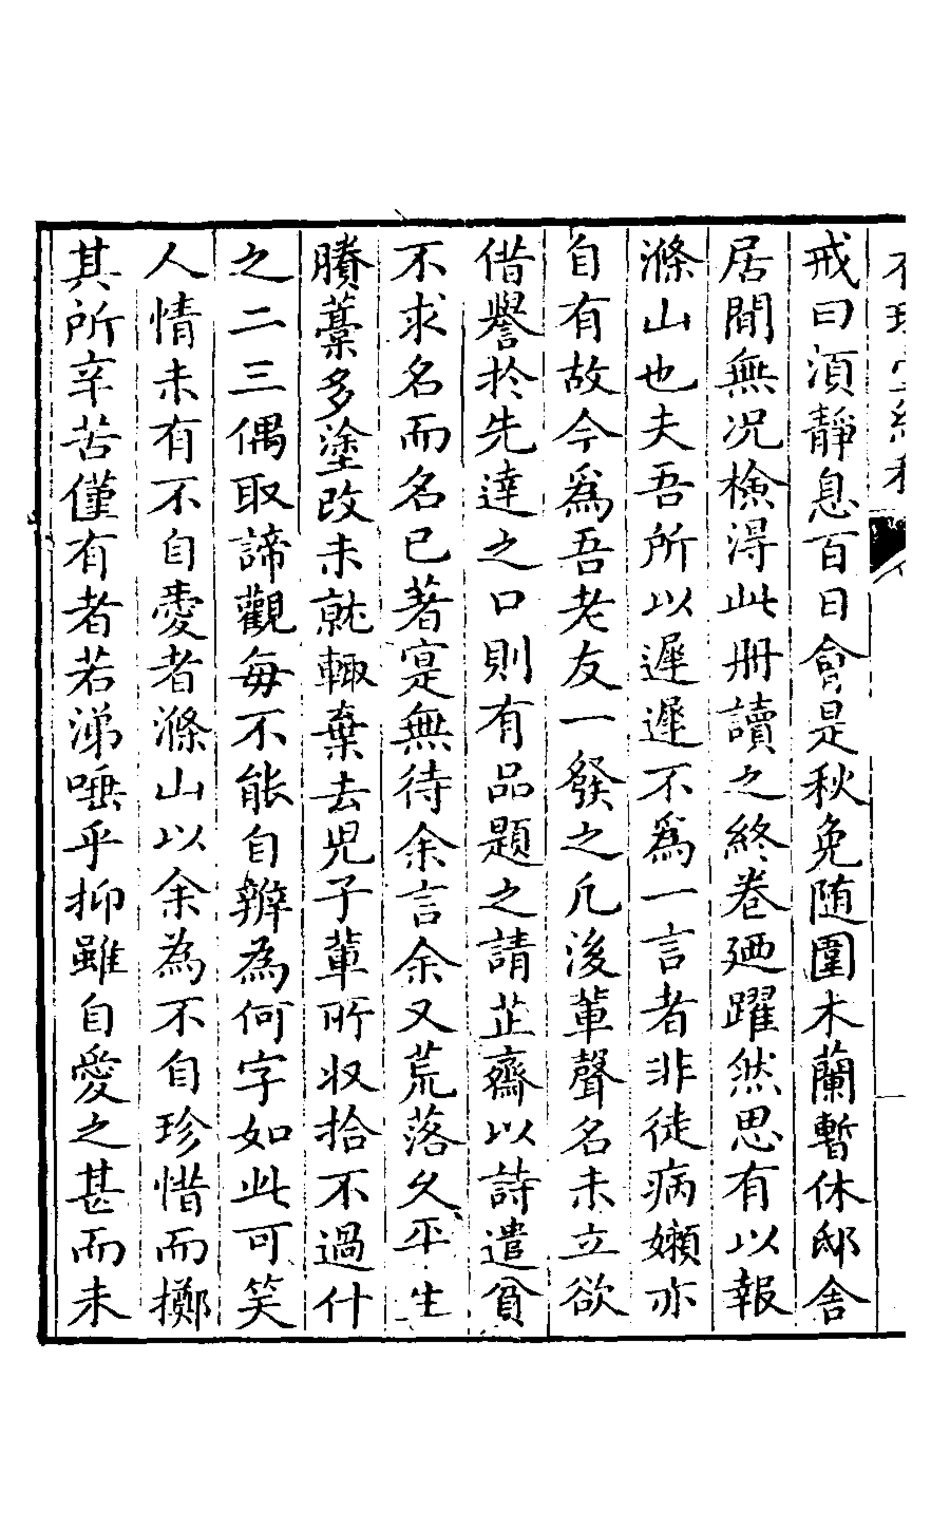 戒曰須靜息百日會是秋免随圍木蘭暫休邸舍
居閒無况檢得此冊讀之終卷廼躍然思有以報
滌山也夫吾所以遲遲不爲一言者非徒病嬾亦
自有故今爲吾老友一發之凡後輩聲名未立欲
借譽於先達之口則有品題之請芷齋以詩遣貧
不求名而名已著寔無待余言余又荒落久平生
賸藁多塗改未就輙棄去児子輩所収拾不過什
之二三偶取諦觀每不能自辨為何字如此可笑
人情未有不自愛者滌山以余為不自珍惜而擲
其所辛苦僅有者若涕唾乎抑雖自愛之甚而未